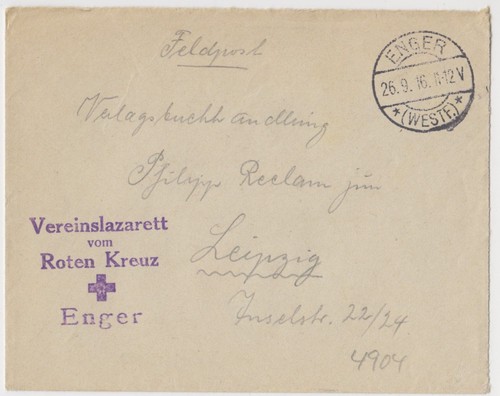 Feldpost
ENGER
26.9.16.11-12V
*(WESTF.)*
Verlagsbuchhandlung
Philipp Reclam jun
Leipzig
Inselstr. 22/24
4904
Vereinslazarett
vom
Roten Kreuz
Enger